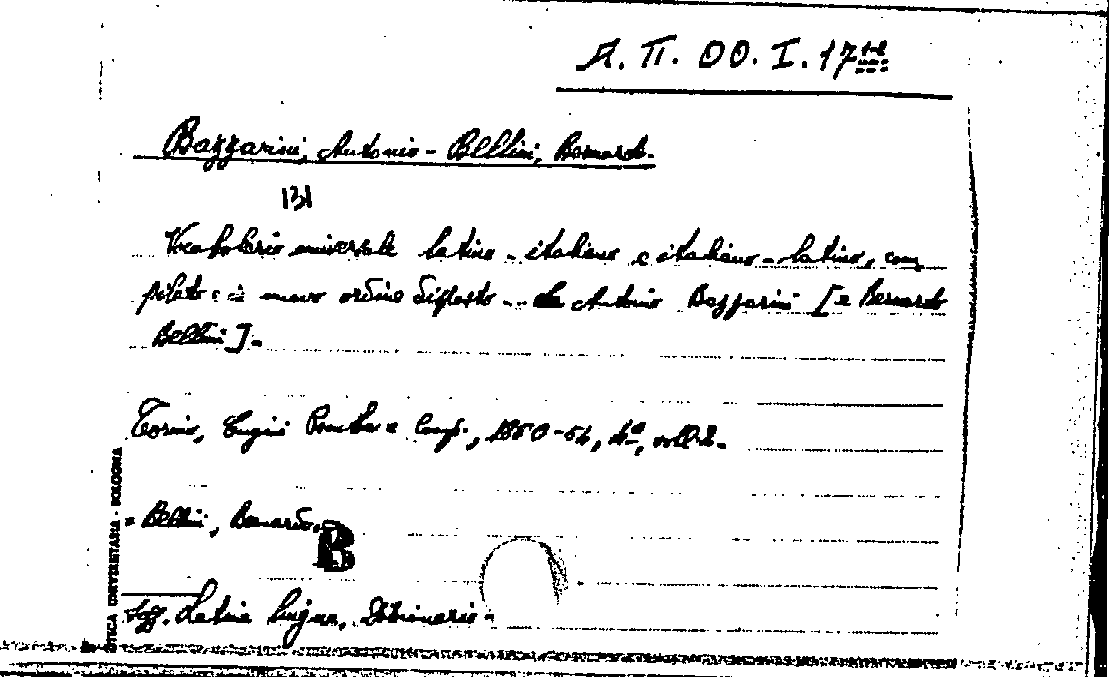 A. II. OO. I. 17
Bazzarini, Antonio - Bellini, Bernardo.
131
Vocabolario universale latino - italiano e italiano - latino, com
pilato e a nuovo ordine disposto .. da Antonio Bazzarini [e Bernardo
Bellini].
Torino, Cugini Pomba e Comp., 1850-54, 4º, voll. 2.
= Bellini, Bernardo.
B
Sogg. Latina lingua, Dizionario.
OTECA UNIVERSITARIA - BOLOGNA